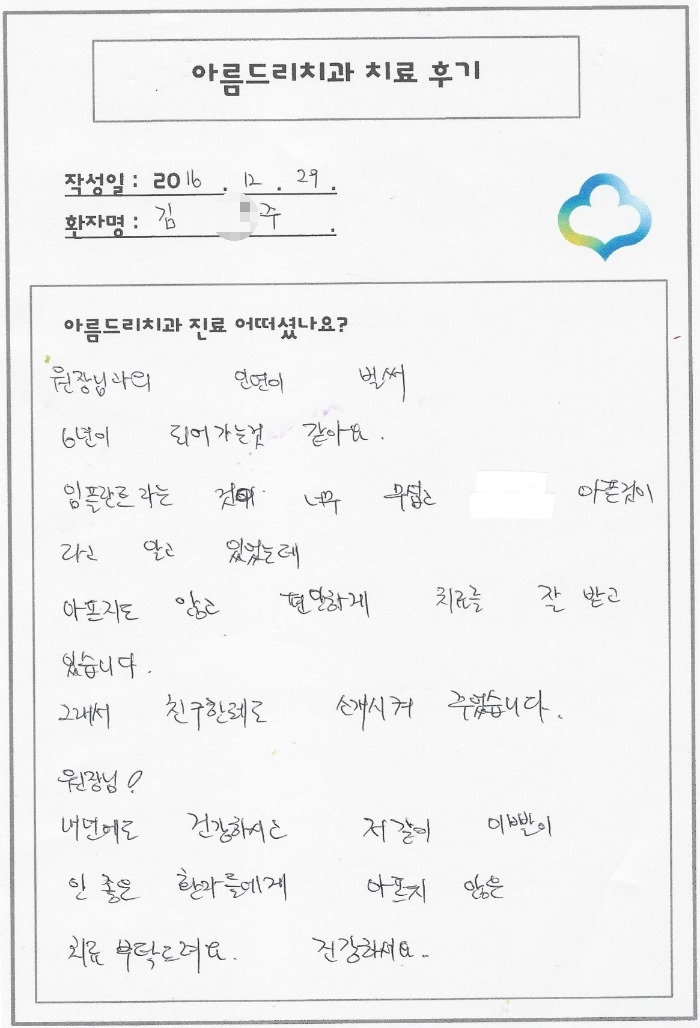 아름드리치과 치료 후기
작성일 : 2016 . 12 . 29 .
환자명 : 김 주 .
아름드리치과 진료 어떠셨나요?
원장님과의 인연이 벌써
6년이 되어가는것 같아요.
임플란트라는 것이 너무 무섭고 아픈것이
라고 알고 있었는데
아프지도 않고 편안하게 치료를 잘 받고
있습니다.
그래서 친구한테로 소개시켜 주었습니다.
원장님!
내년에도 건강하시고 저같이 이빨이
안 좋은 환자들에게 아프지 않은
치료 부탁드려요. 건강하세요.